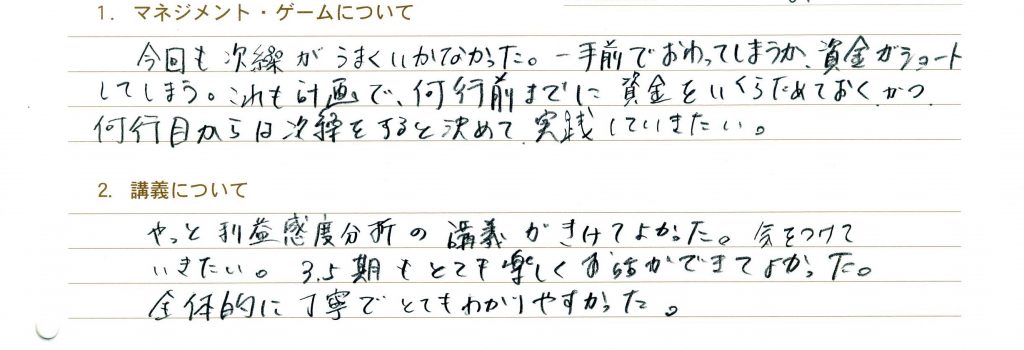 1. マネジメント・ゲームについて
今回も次繰がうまくいかなかった。一手前でおわってしまうか、資金がショート
してしまう。これも計画で、何行前までに資金をいくらためておく、かつ
何行目からは次繰をすると決めて、実践していきたい。
2. 講義について
やっと利益感度分析の講義がきけてよかった。気をつけて
いきたい。3.5期もとても楽しくお話ができてよかった。
全体的に丁寧でとてもわかりやすかった。